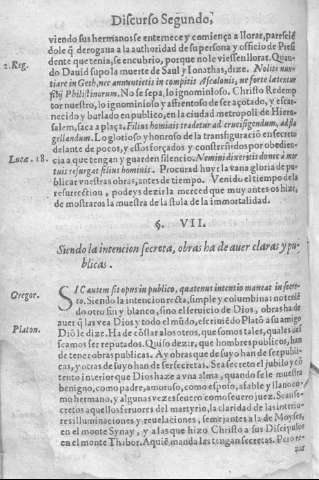 Discurso Segundo,
viendo sus hermanos se enternece y comiença a llorar, parescié
dole q̃ derogaua a la authoridad de su persona y officio de Presi
dente que tenia, se encubrio, porque no le viessen llorar. Quan-
2. Reg.
do Dauid supo la muerte de Saul y Ionathas, dize. Nolite nun-
tiare in Geth, nec annuntietis in compitis Ascalonis, ne forte lætentur
filiæ Philistinorum. No se sepa, lo ignominioso. Christo Redemp
tor nuestro, lo ignominioso y affrentoso de ser açotado, y escar-
necido y burlado en publico, en la ciudad metropoli de Hieru-
salem, saca a plaça. Filius hominis tradetur ad crucifigendum, ad fla
gellandum. Lo glorioso y honroso de la transfiguraciõ en secreto
delante de pocos, y essos forçados y constreñidos por obedien-
Luca. 18.
cia a que tengan y guarden silencio. Nemini dixeritis donec à mor
tuis resurgat filius hominis. Procurad huyr la vana gloria de pu-
blicar vuestras obras, antes de tiempo. Venido el tiempo de la
resurrection, podeys dezir la merced que muy antes os hize,
de mostraros la muestra de la stola de la immortalidad.
§. VII.
Siendo la intencion secreta, obras ha de auer claras y pu-
blicas.
Gregor.
SIC autem sit opus in publico, quatenus intentio maneat in secre-
to. Siendo la intencion recta, simple y columbina: no teniẽ
do otro fin y blanco, sino el seruicio de Dios, obras ha de
Platon.
auer q̃ las vea Dios y todo el mũdo, escriuiẽdo Platõ a su amigo
Diõ le dize. Ha de cõstar a los otros, que somos tales, quales des
seamos ser reputados. Quiso dezir, que hombres publicos, han
de tener obras publicas. Ay obras que de suyo han de ser publi-
cas, y otras de suyo han de ser secretas. Sea secreto el jubilo y cõ
tento interior que Dios haze a vna alma, quando se le muestra
benigno, como padre, amoroso, como esposo, afable y llano co-
mo hermano, y algunas vezes seuero como seuero juez. Sean se-
cretos aquellos feruores del martyrio, la claridad de las interio-
res illuminaciones y reuelaciones, semejantes a la de Moyses,
en el monte Synay, y a las que hizo Christo a sus Discipulos
en el monte Thabor. Aquiẽ manda las tengan secretas. Pero o-